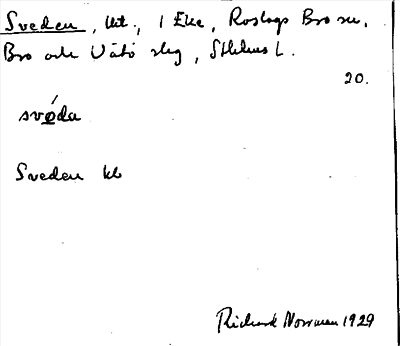 Sveden, Ut., 1 Eke, Roslags Bro sn,
Bro och Vätö slg, Sthlms L.
20.
svǿda
Sveden kb
Richard Norrman 1929